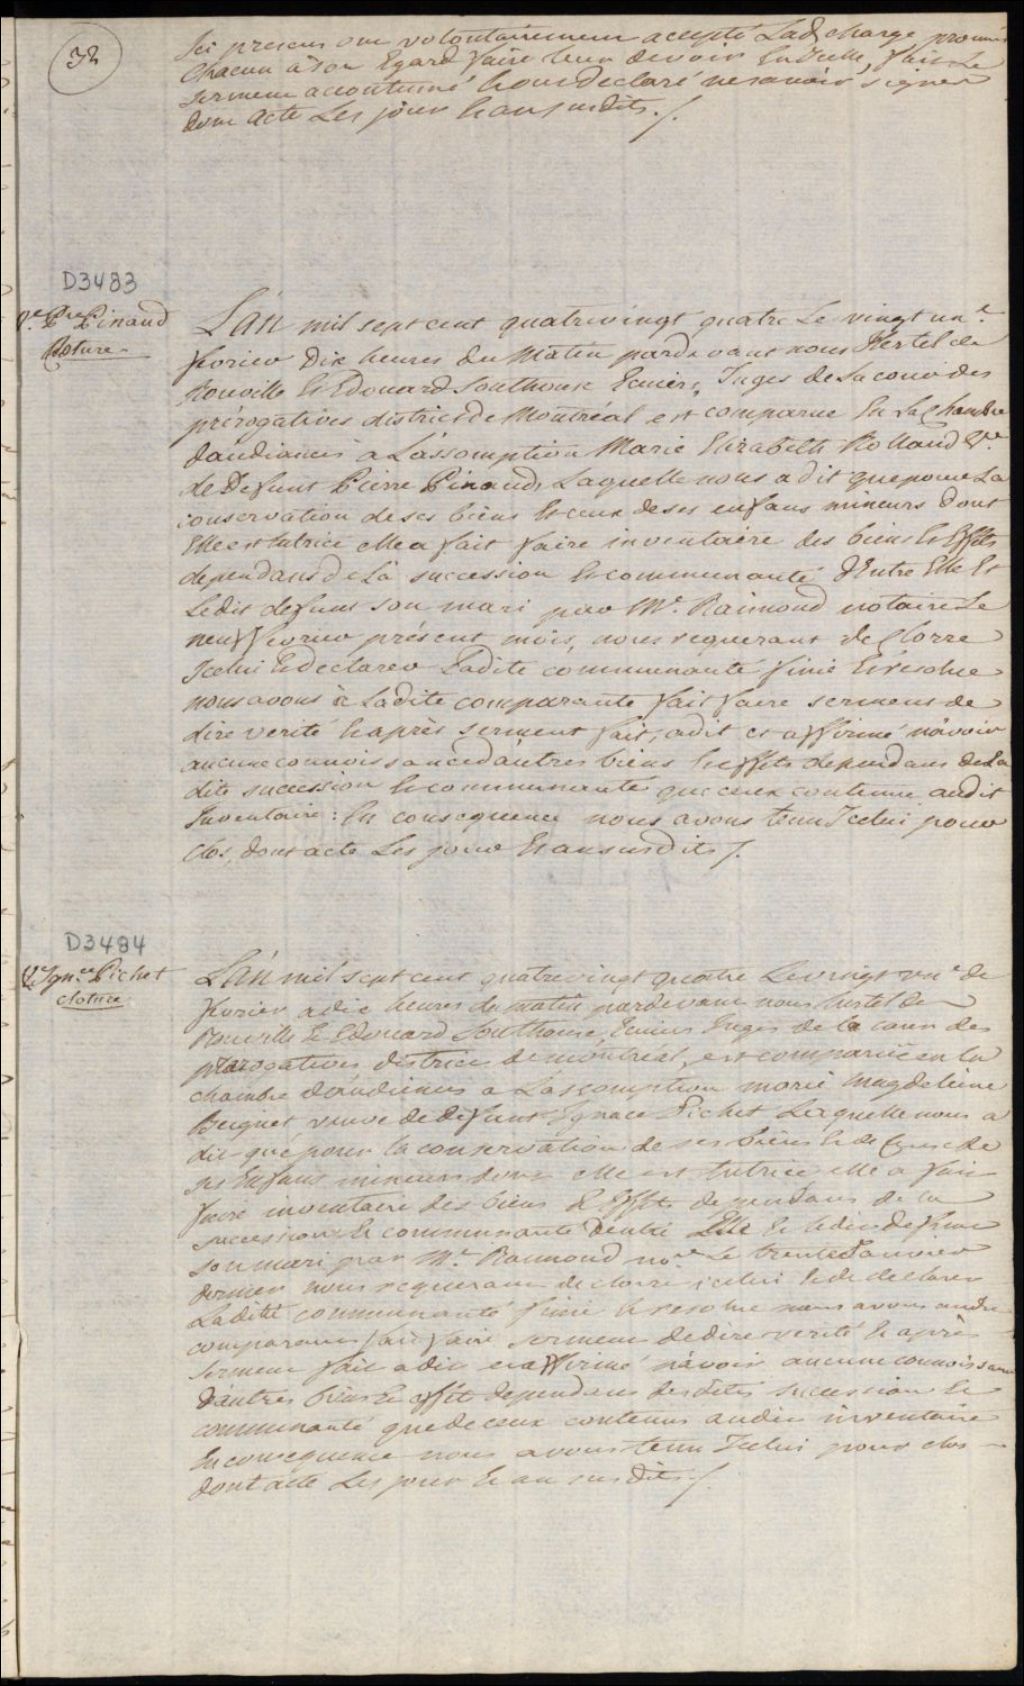 32
Ici presens ont volontairement accepté Lad. charge promis
Chacun à son Egard faire leur devoir En Icelle, fait Le
serment accoutumé Et ont Declaré ne savoir signer
dont Acte Les jour Et an susdits ./.
D3483
Ve. Pre Pinaud
Cloture
L'an mil sept cent quatrevingt quatre Le vingt un e
fevrier Dix heures du Matin pardevant nous Hertel de
Rouville Et Edouard Southouse Ecuiers, Juges de La cour des
prérogatives district de Montréal est comparue En La Chambre
daudiances à L'assomption Marie Elizabeth Rolland Ve.
de Defunt Pierre Pinaud, Laquelle nous a dit que pour La
conservation de ses biens Et ceux de ses enfans mineurs dont
Elle est tutrice elle a fait faire inventaire des biens Et Effets
dependans de Là succession Et communauté d'Entre Elle Et
Ledit defunt son mari par Mr. Raimond notaire Le
neuf fevrier présent mois, nous requerant de Clorre
Icelui Et declarer Ladite communauté finie Et resolue
nous avons à Ladite comparante fait faire serment de
dire verité Et après serment fait, a dit et affirmé n'avoir
aucune connoissance d'autres biens Et effets dependans de La
dite succession Et communauté que ceux contenus audit
Inventaire : En consequence nous avons tenu Icelui pour
clos, dont acte Les jour Et an susdits ./.
D3484
Ve Ignce Pichet
cloture
L'an mil sept cent quatrevingt quatre Le vingt un e de
fevrier a dix heures du matin pardevant nous hertel de
Rouville Et Edouard Southouse, Ecuiers Juges de la cour des
prerogatives district de montréal, est comparüe en la
chambre d'audiences a L'assomption marie magdeleine
veuve de defunt Ignace Pichet Laquelle nous a
dit que pour la conservation de ses biens Et de Ceux de
ses Enfans mineurs dont elle est tutrice elle a fait
faire inventaire des biens Et Effets dependans de la
succession Et communauté d'entre Elle Et Ledit defunt
son mari par Mr. Raimond nore. Le trente Janvier
dernier nous requerant de clorre icelui Et de declarer
Ladite communauté finie Et resolue nous avons
comparante fait faire serment de dire verité Et après
serment fait a dit et affirmé n'avoir aucune connoissance
d'autres biens Et effets dependans desdites succession Et
communauté que de ceux contenus audit inventaire
En consequence nous avons tenu Icelui pour clos
dont acte Les jour Et an susdits ./.